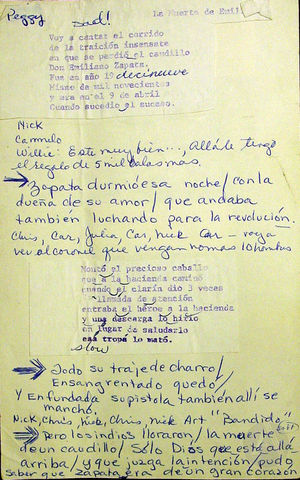 Peggy
sad!
La Muerte de Emil
Voy a cantar el corrido
de la traición insensata
en que se perdió el caudillo
Don Emiliano Zapata.
Fue en año 19 diecinueve
Mismo de mil novecientos
y era en el 9 de abril
Cuando sucedió el suceso.
Nick
Carmelo
Willie: Está muy bien..., Allá le tengo
el regalo de 5 mil balas mas.
Zapata durmió esa noche/con la
dueña de su amor/que andaba
también luchando para la revolución.
Chris, Car, Julia, Car, Nick Car - vaya
ver al coronel que vengan nomas 10 hombres
Montó el precioso caballo
que a la hacienda caminó
cuando el clarín dio 3 veces
llamada de atención
entraba el héroe a la hacienda
y una descarga lo hirió
en lugar de saludarlo
esa tropa lo mató.
slow
Todo su traje de charro/
Ensangrentado quedó/
Y Enfundada su pistola también allí se
manchó.
Nick, Chris, Nick, Chris, Nick Art "Bandido"
Pero los indios lloraron/la muerte
de un caudillo/Sólo Dios que está allá
arriba/y que juzga la intención/pudo
saber que Zapata era de un gran corazón